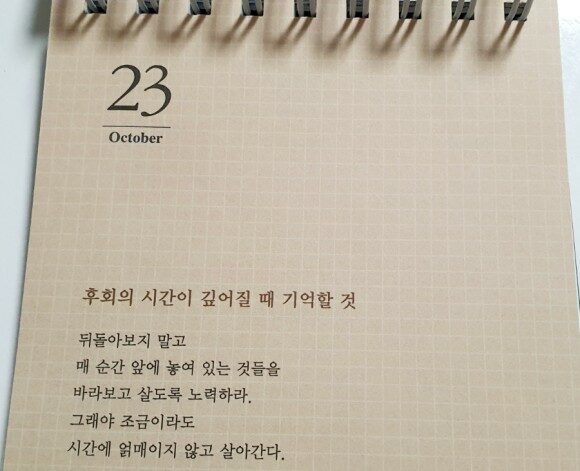 23
October
후회의 시간이 깊어질 때 기억할 것
뒤돌아보지 말고
매 순간 앞에 놓여 있는 것들을
바라보고 살도록 노력하라.
그래야 조금이라도
시간에 얽매이지 않고 살아간다.